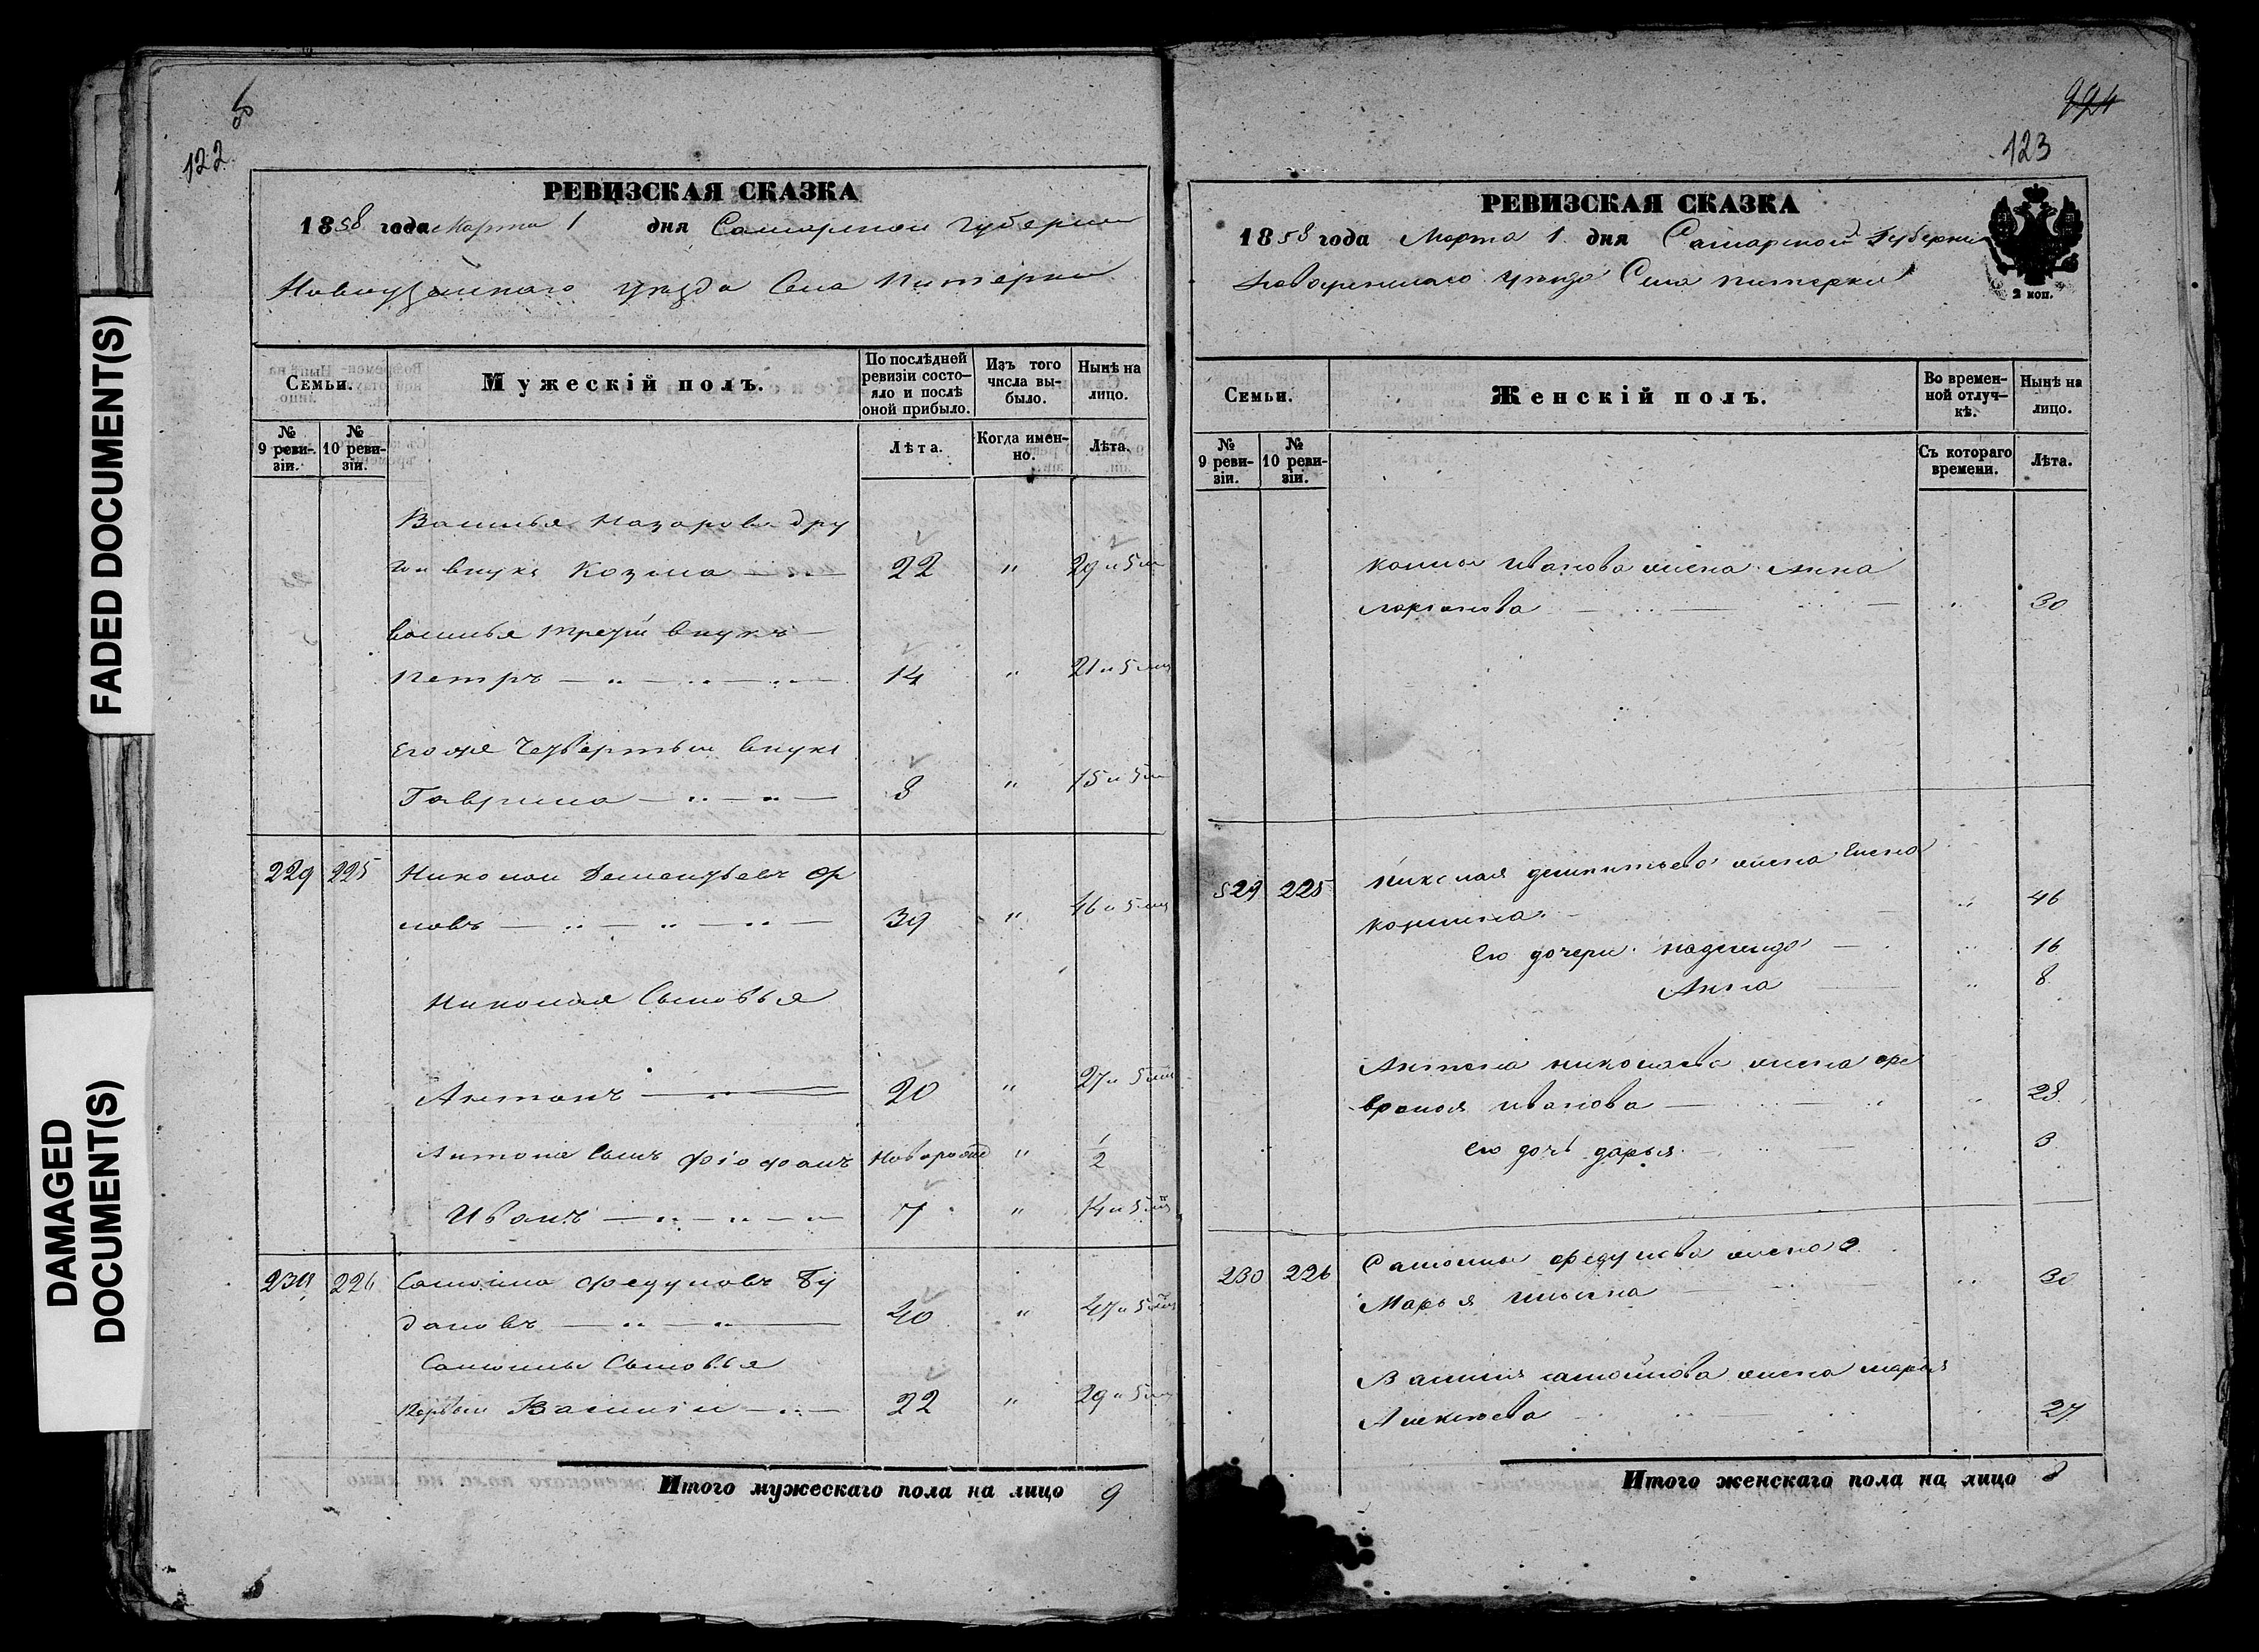 FADED DOCUMENT(S)
DAMAGED
DOCUMENT(S)
122
РЕВИЗСКАЯ СКАЗКА
1858 года Марта 1 дня Самарской Губернии
Новоузенскаго уезда Села Питерки
Семьи.
Мужескій полъ.
По послѣдней ревизіи состояло и послѣ оной прибыло.
Изъ того числа выбыло.
Нынѣ на лицо.
№ 9 ревизіи.
№ 10 ревизіи.
Лѣта.
Когда именно.
Лѣта.
Василья Назарова дру
гой внукъ Козма 22 " 29 и 5 м
Василья третій внукъ
Петръ 14 " 21 и 5 мец
Его же Четвертый внукъ
Гаврила 8 " 15 и 5 м
229 225 Николай Дементьевъ
39 " 46 и 5 мец
Николая Сыновья
Антонъ 20 " 27 и 5 мец
Антона Сынъ Новорожд " 1/2
Иванъ 7 " 14 и 5 мец
230 226 Самойла Федуловъ Бу
дановъ 40 " 47 и 5 мец
Самойлы Сыновья
первый Василій 22 " 29 и 5 м
Итого мужескаго пола на лицо 9
224
123
РЕВИЗСКАЯ СКАЗКА
1858 года Марта 1 дня Самарской Губернии
Новоузенскаго уезда Села Питерки
2 коп.
Семьи.
Женскій полъ.
Во временной отлучкѣ.
Нынѣ на лицо.
№ 9 ревизіи.
№ 10 ревизіи.
Съ котораго времени.
Лѣта.
Иванова жена Анна
" 30
229 225 Николая жена Елена
" 46
Его дочери Надежда " 16
Анна " 8
Антона Николаева жена Фе
вронья Иванова " 28
его дочь Дарья " 3
230 226 Самойлы Федулова жена
Марья Ильина " 30
Василия Самойлова жена Марья
Алексеева 27
Итого женскаго пола на лицо 8